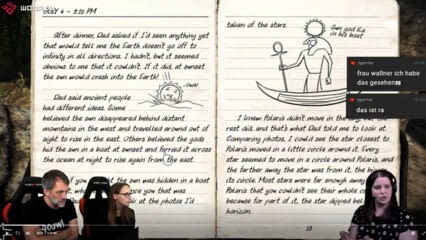 WOOPLAY
JULY 4 - 3:15 PM
After dinner, Dad asked if I'd seen anything yet
that would tell me the Earth doesn't go off to
infinity in all directions. I hadn't, but it seemed
obvious to me that it couldn't. If it did, at sunset
the sun would crash into the Earth!
Ouch!
Dad said ancient people
had different ideas. Some
believed the sun disappeared behind distant
mountains in the west and travelled around out of
sight to rise in the east. Others believed the gods
hid the sun in a boat at sunset and ferried it across
the ocean at night to rise again from the east.
was hidden in a boat
you that was
at the photos I'd
taken of the stars.
Sun god Ra
in his boat
I knew Polaris didn't move in the sky, but the
rest did, and that's what Dad told me to look at.
Comparing photos, I could see the star closest to
Polaris moved in a little circle around it. Every
star seemed to move in a circle around Polaris, and
the farther away the star was from it, the bigger
its circle. Most were far enough away
Polaris that you couldn't see their whole
because for part of it, the star dipped below
horizon.
frau wallner ich habe
das gesehen
das ist ra